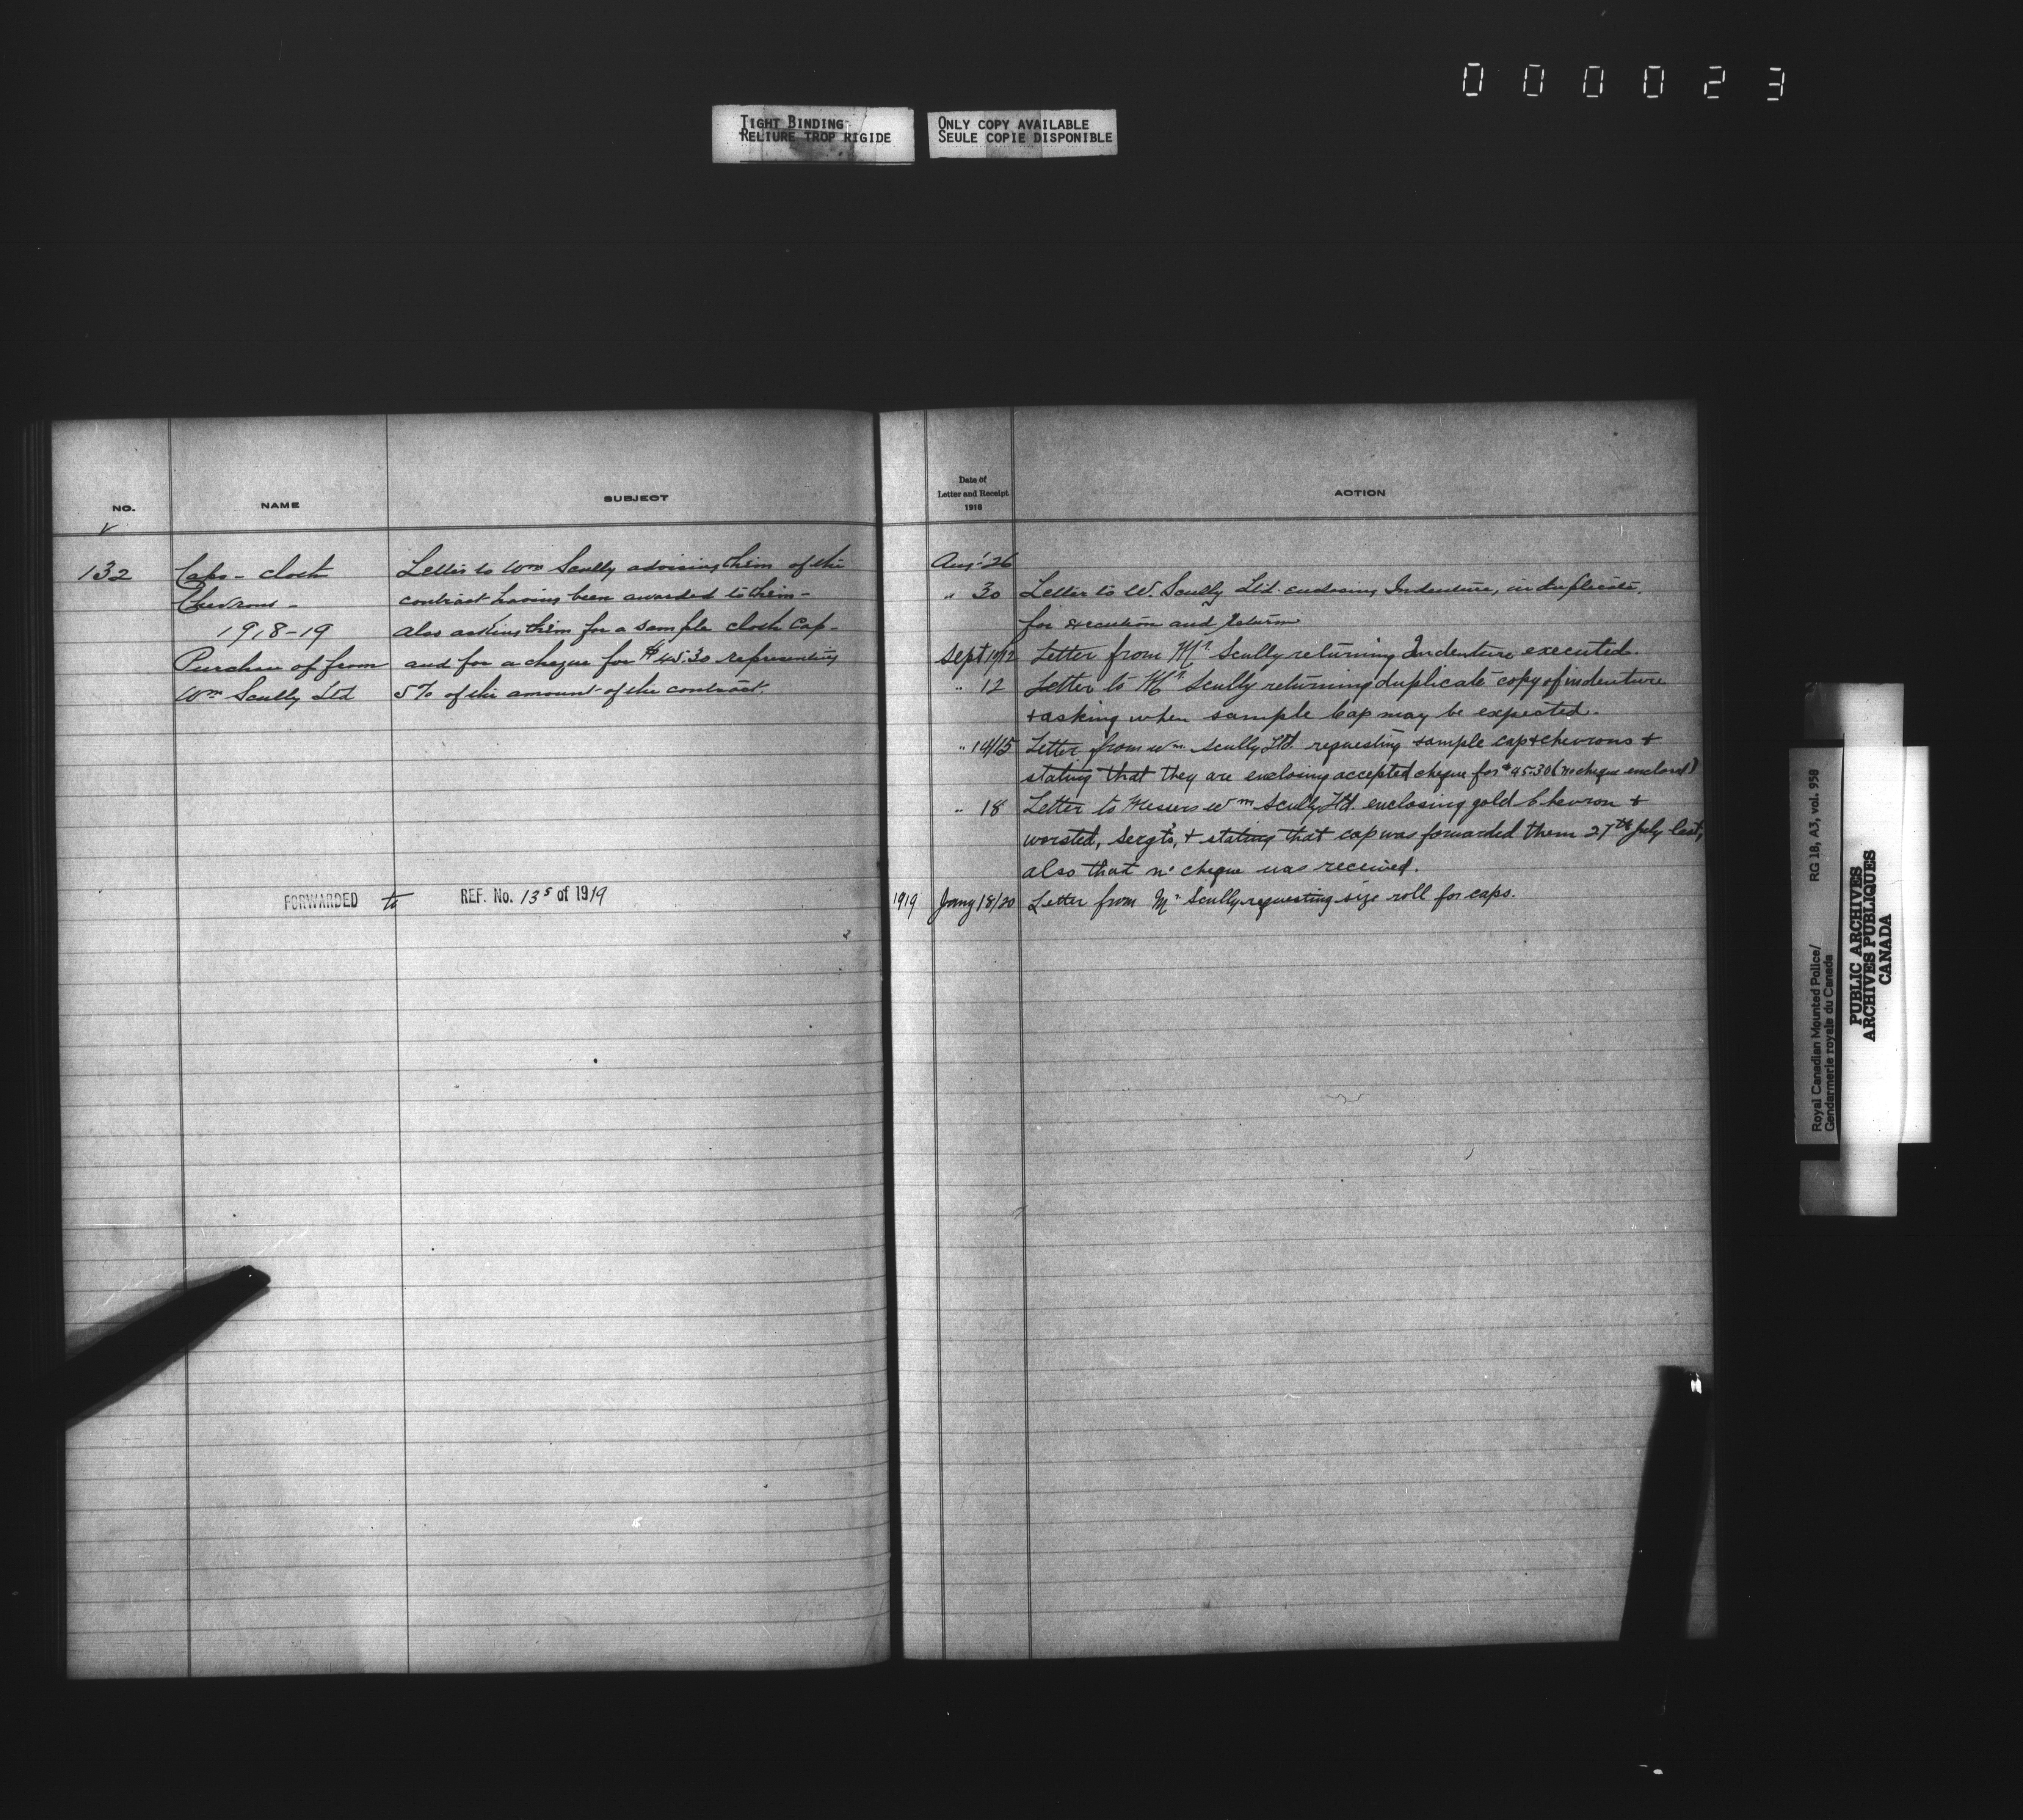 000023
TIGHT BINDING
RELIURE TROP RIGIDE
ONLY COPY AVAILABLE
SEULE COPIE DISPONIBLE
NO.
NAME
SUBJECT
132
Caps - cloth
Chevrons -
1918-19
Purchase of from
Wm Scully Ltd
Letter to Wm Scully advising them of the
contract having been awarded to them -
also asking them for a sample cloth cap -
and for a cheque for $45.30 representing
5% of the amount of the contract.
FORWARDED to REF. No. 135 of 1919
Date of
Letter and Receipt
1918
ACTION
Aug: 26
" 30 Letter to W. Scully Ltd. enclosing Indenture, in duplicate,
for execution and return
Sept Letter from Mr. Scully returning Indenture executed.
" 12 Letter to Mr. Scully returning duplicate copy of indenture
+ asking when sample cap may be expected.
" 14/15 Letter from Wm Scully Ltd. requesting sample cap + chevrons +
stating that they are enclosing accepted cheque for $45.30 (no cheque enclosed)
" 18 Letter to Messrs Wm Scully Ltd. enclosing gold Chevron +
worsted, Sergt's, + stating that cap was forwarded them 27th July last,
also that no cheque was received.
1919 Jany 18/20 Letter from Mr Scully requesting size roll for caps.
Royal Canadian Mounted Police/
Gendarmerie royale du Canada
RG 18, A3, vol. 958
PUBLIC ARCHIVES
ARCHIVES PUBLIQUES
CANADA